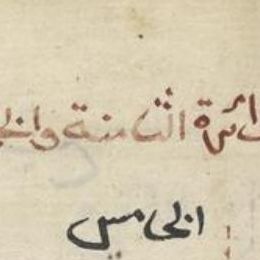 دائرة الثامنة والخا
الخامس